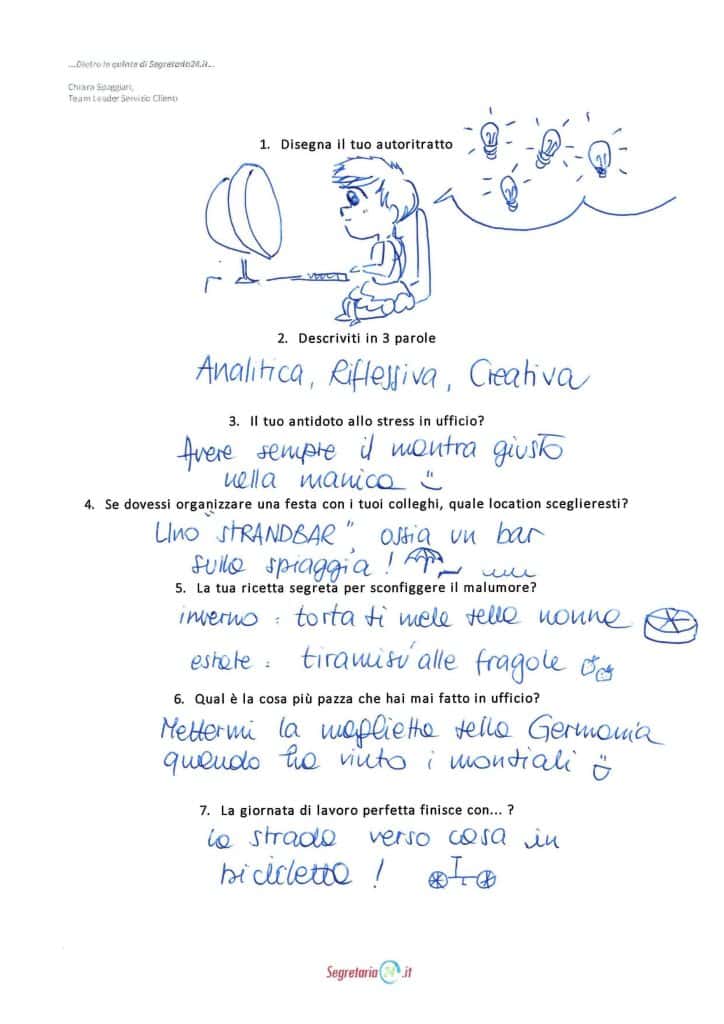 ...Dietro le quinte di Segretaria24.it...
Chiara Spaggiari,
Team Leader Servizio Clienti
1. Disegna il tuo autoritratto
2. Descriviti in 3 parole
Analitica, Riflessiva, Creativa
3. Il tuo antidoto allo stress in ufficio?
Avere sempre il mantra giusto
nella manica
4. Se dovessi organizzare una festa con i tuoi colleghi, quale location sceglieresti?
Uno "STRANDBAR", ossia un bar
sulla spiaggia!
5. La tua ricetta segreta per sconfiggere il malumore?
inverno: torta di mele della nonna
estate: tiramisu' alle fragole
6. Qual è la cosa più pazza che hai mai fatto in ufficio?
Mettermi la maglietta della Germania
quando ha vinto i mondiali
7. La giornata di lavoro perfetta finisce con... ?
la strada verso casa in
bicicletta!
Segretaria24.it